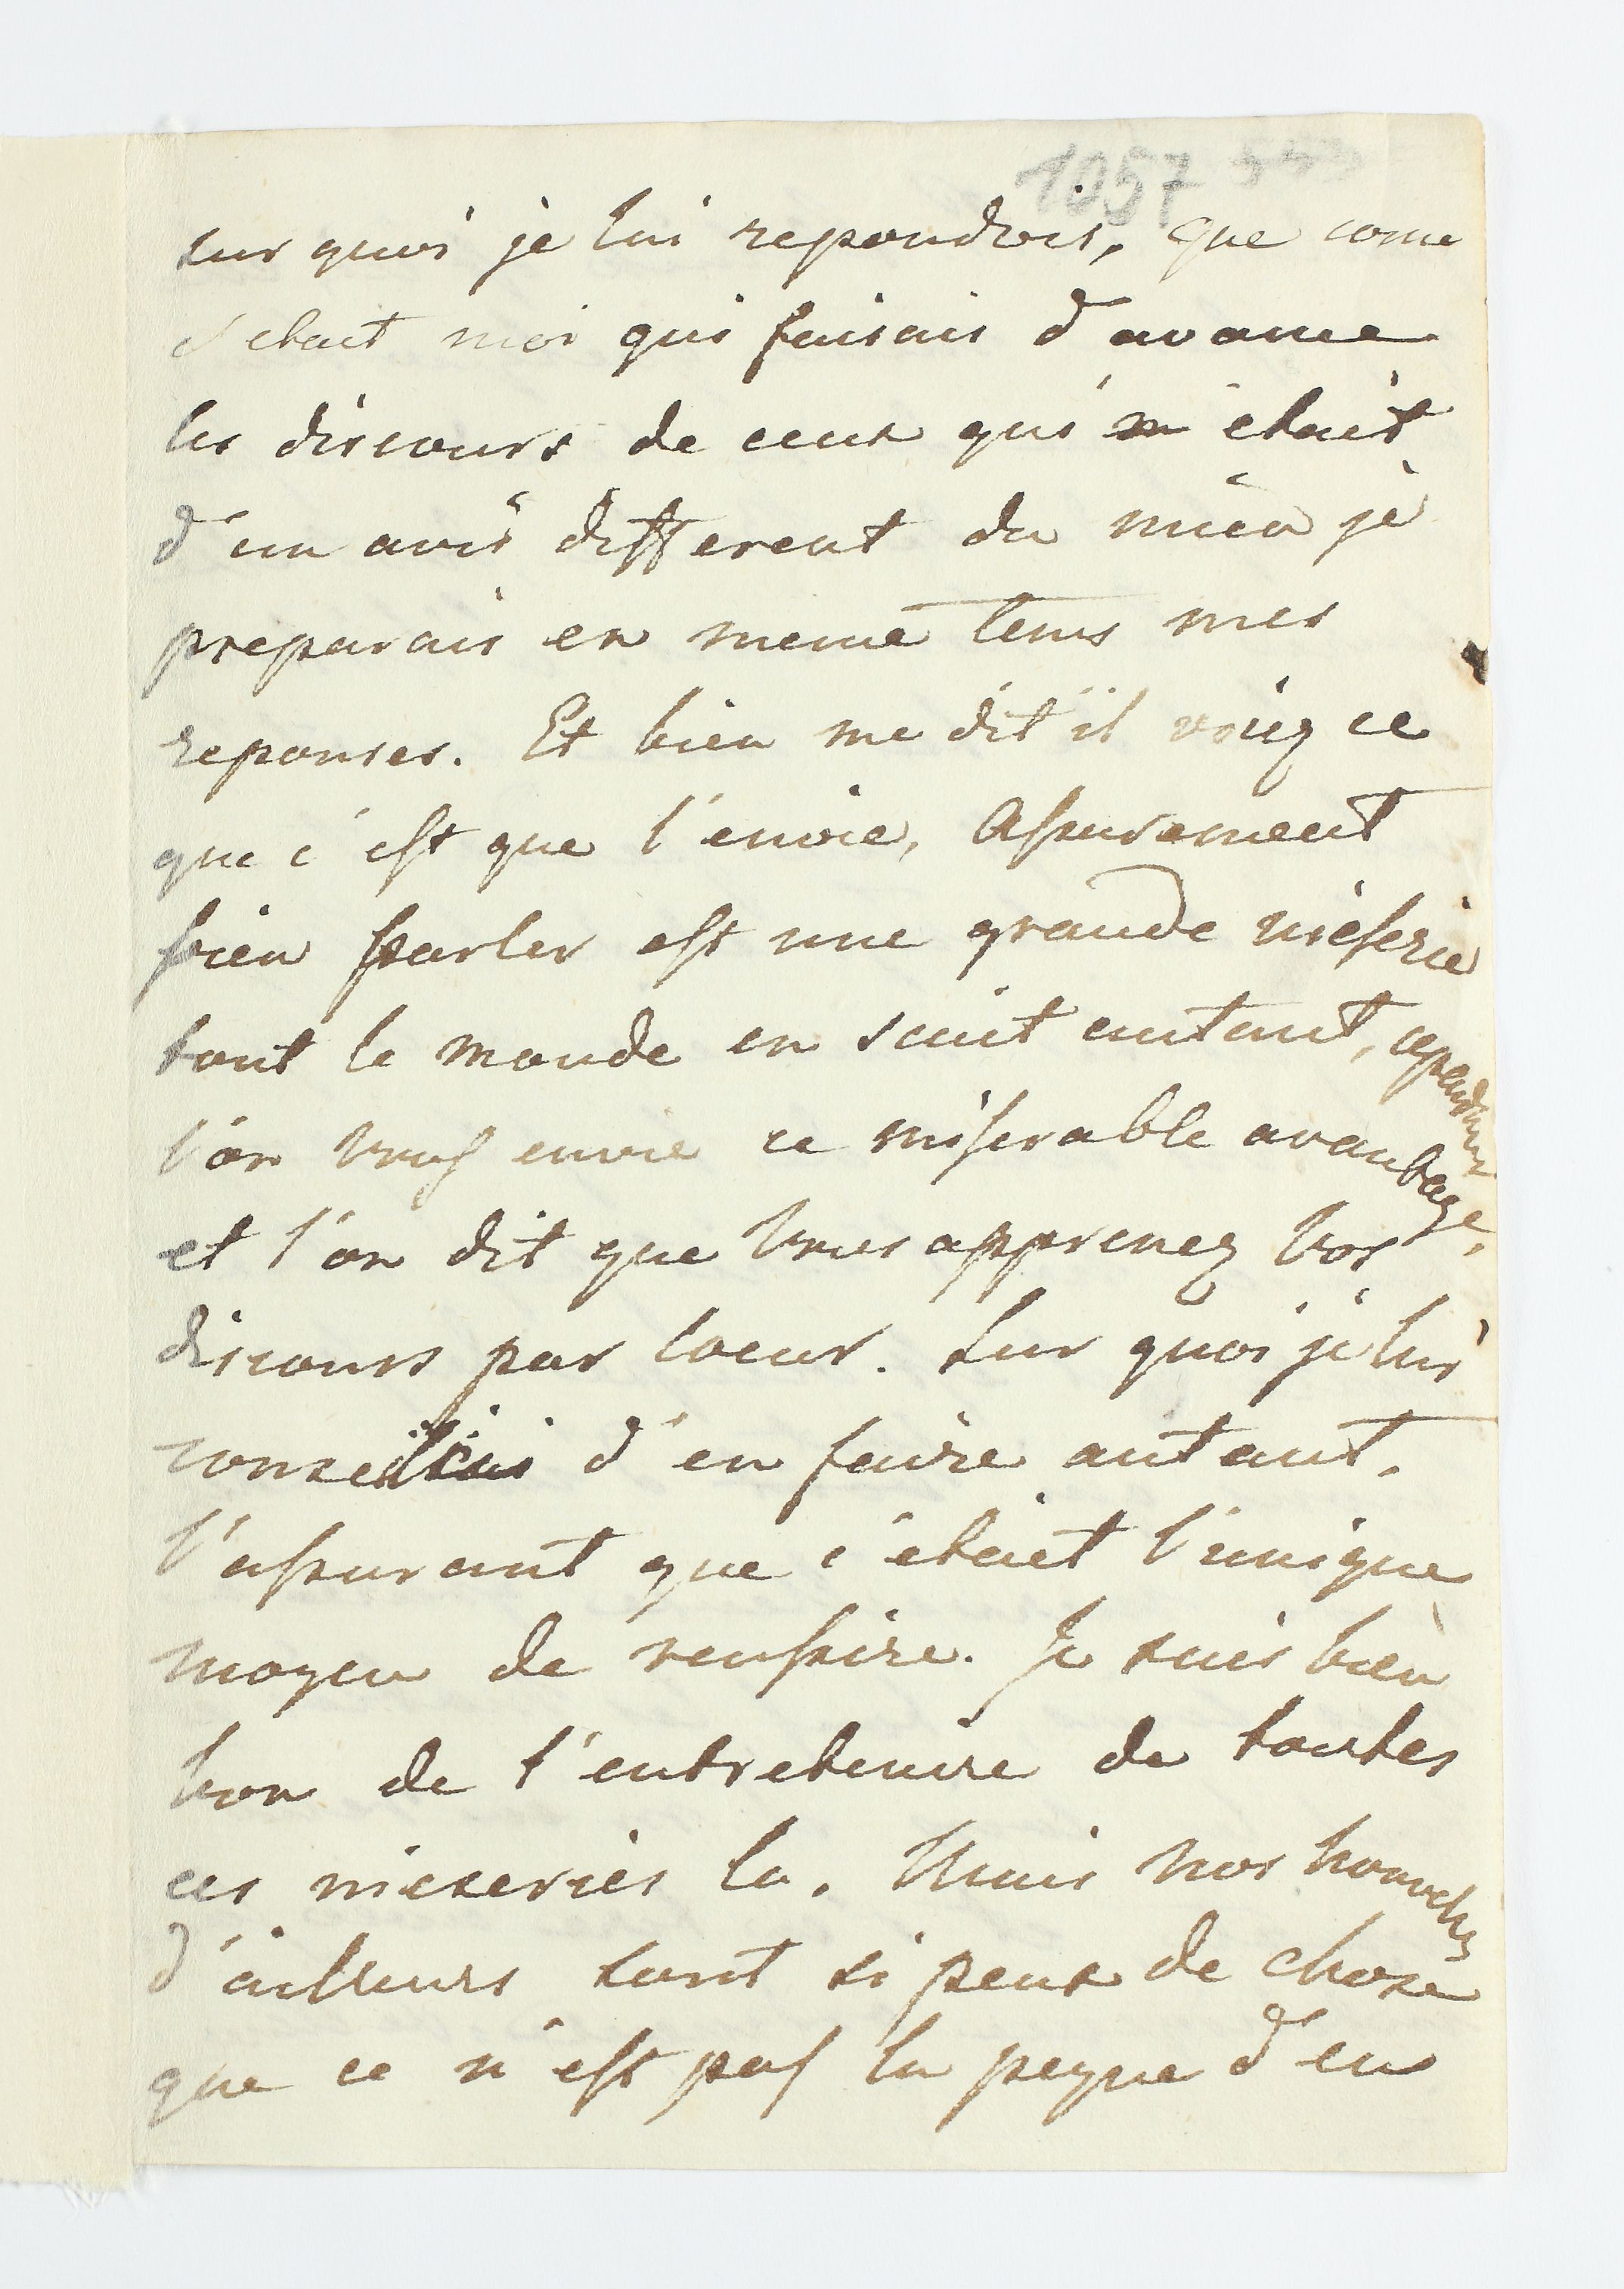 1057
sur quoi je lui repondois, que come
c'etait moi qui faisais d'avance
les discours de ceux qui etait
d'un avis different du mien je
preparais en meme tems mes
reponses. Et bien me dit il voiez ce
que c'est que l'envie, Assurement
bien parler est une grande nieserie
tout le monde en scait autant, cependant
l'on vous envie ce miserable avantage,
et l'on dit que vous apprenez vos
discours par coeur. Sur quoi je lui
conseillai d'en faire autant,
l'assurant que c'etait l'unique
moyen de reussire. Je suis bien
bon de t'entretenire de toutes
ces nieseries la. Mais nos nouvelles
d'ailleurs sont si peux de chose
que ce n'est pas la peyne d'en